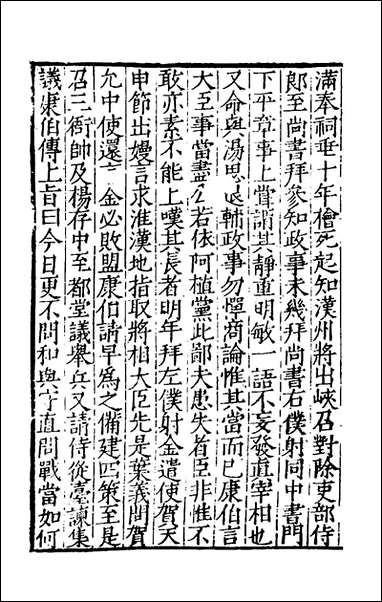 滿奉祠垂十年檜死起知漢州將出峽召對除吏部侍
郎至尚書拜參知政事未幾拜尚書右僕射同中書門
下平章事上嘗謂其靜重明敏一語不妄發真宰相也
又命與湯思退輔政事勿憚商論惟其當而已康伯言
大臣事當盡公若依阿植黨此鄙夫患失者臣非惟不
敢亦素不能上嘆其長者明年拜左僕射金遣使賀天
申節出嫚言求淮漢地指取將相大臣先是葉義問賀
允中使還言金必敗盟康伯請早為之備建四策至是
召三衙帥及楊存中至都堂議舉兵又請侍從臺諫集
議康伯傳上旨曰今日更不問和與守直問戰當如何